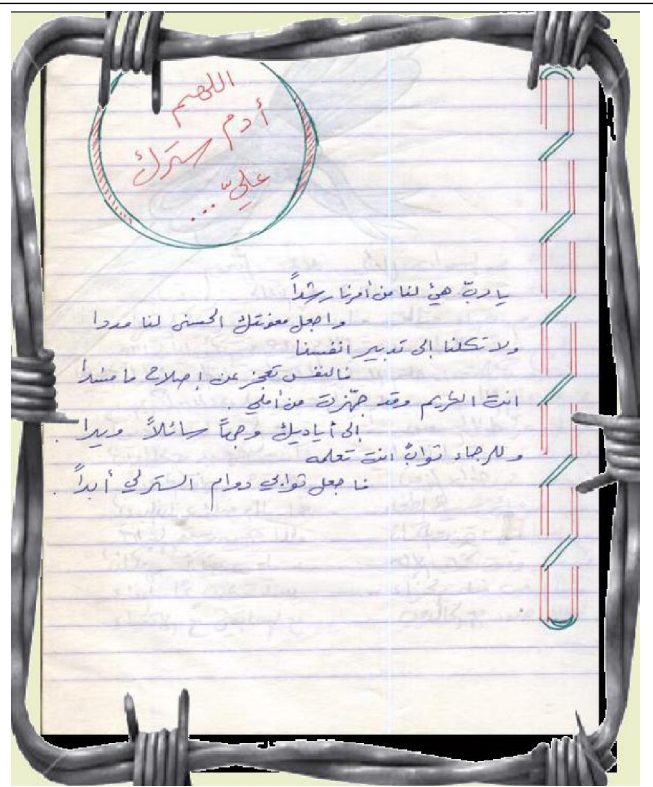 اللهم
أدم سترك
عليّ...
يا ربّ هيئ لنا من أمرنا رشداً
واجعل معونتك الحسنى لنا مددا
ولا تكلنا إلى تدبير انفسنا
فالنفس تعجز عن إصلاح ما فسدا
انت الكريم وقد جهّزت من أملي.
إلى أياديك وجهاً سائلاً ويدا.
وللرجاء ثوابٌ انت تعلمه
فاجعل ثوابي دوام الستر لي أبداً.